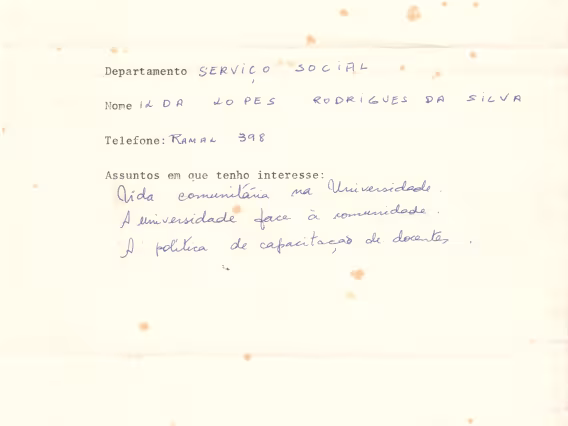 Departamento SERVIÇO SOCIAL
Nome ILDA LOPES RODRIGUES DA SILVA
Telefone: RAMAL 398
Assuntos em que tenho interesse:
Vida comunitária na Universidade.
A universidade face à comunidade.
A política de capacitação de docentes.